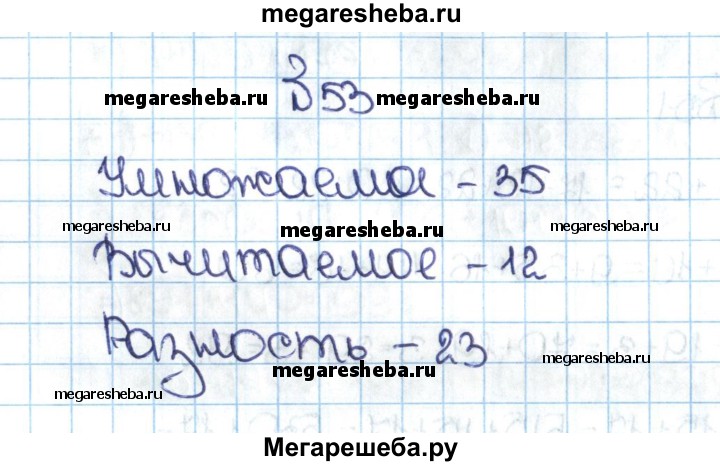 megaresheba.ru
З 53
megaresheba.ru megaresheba.ru
Умножаема - 35
megaresheba.ru megaresheba.ru megaresheba.ru
Вычитаемое - 12
Разность - 23
megaresheba.ru megaresheba.ru megaresheba.ru
Мегарешеба.ру